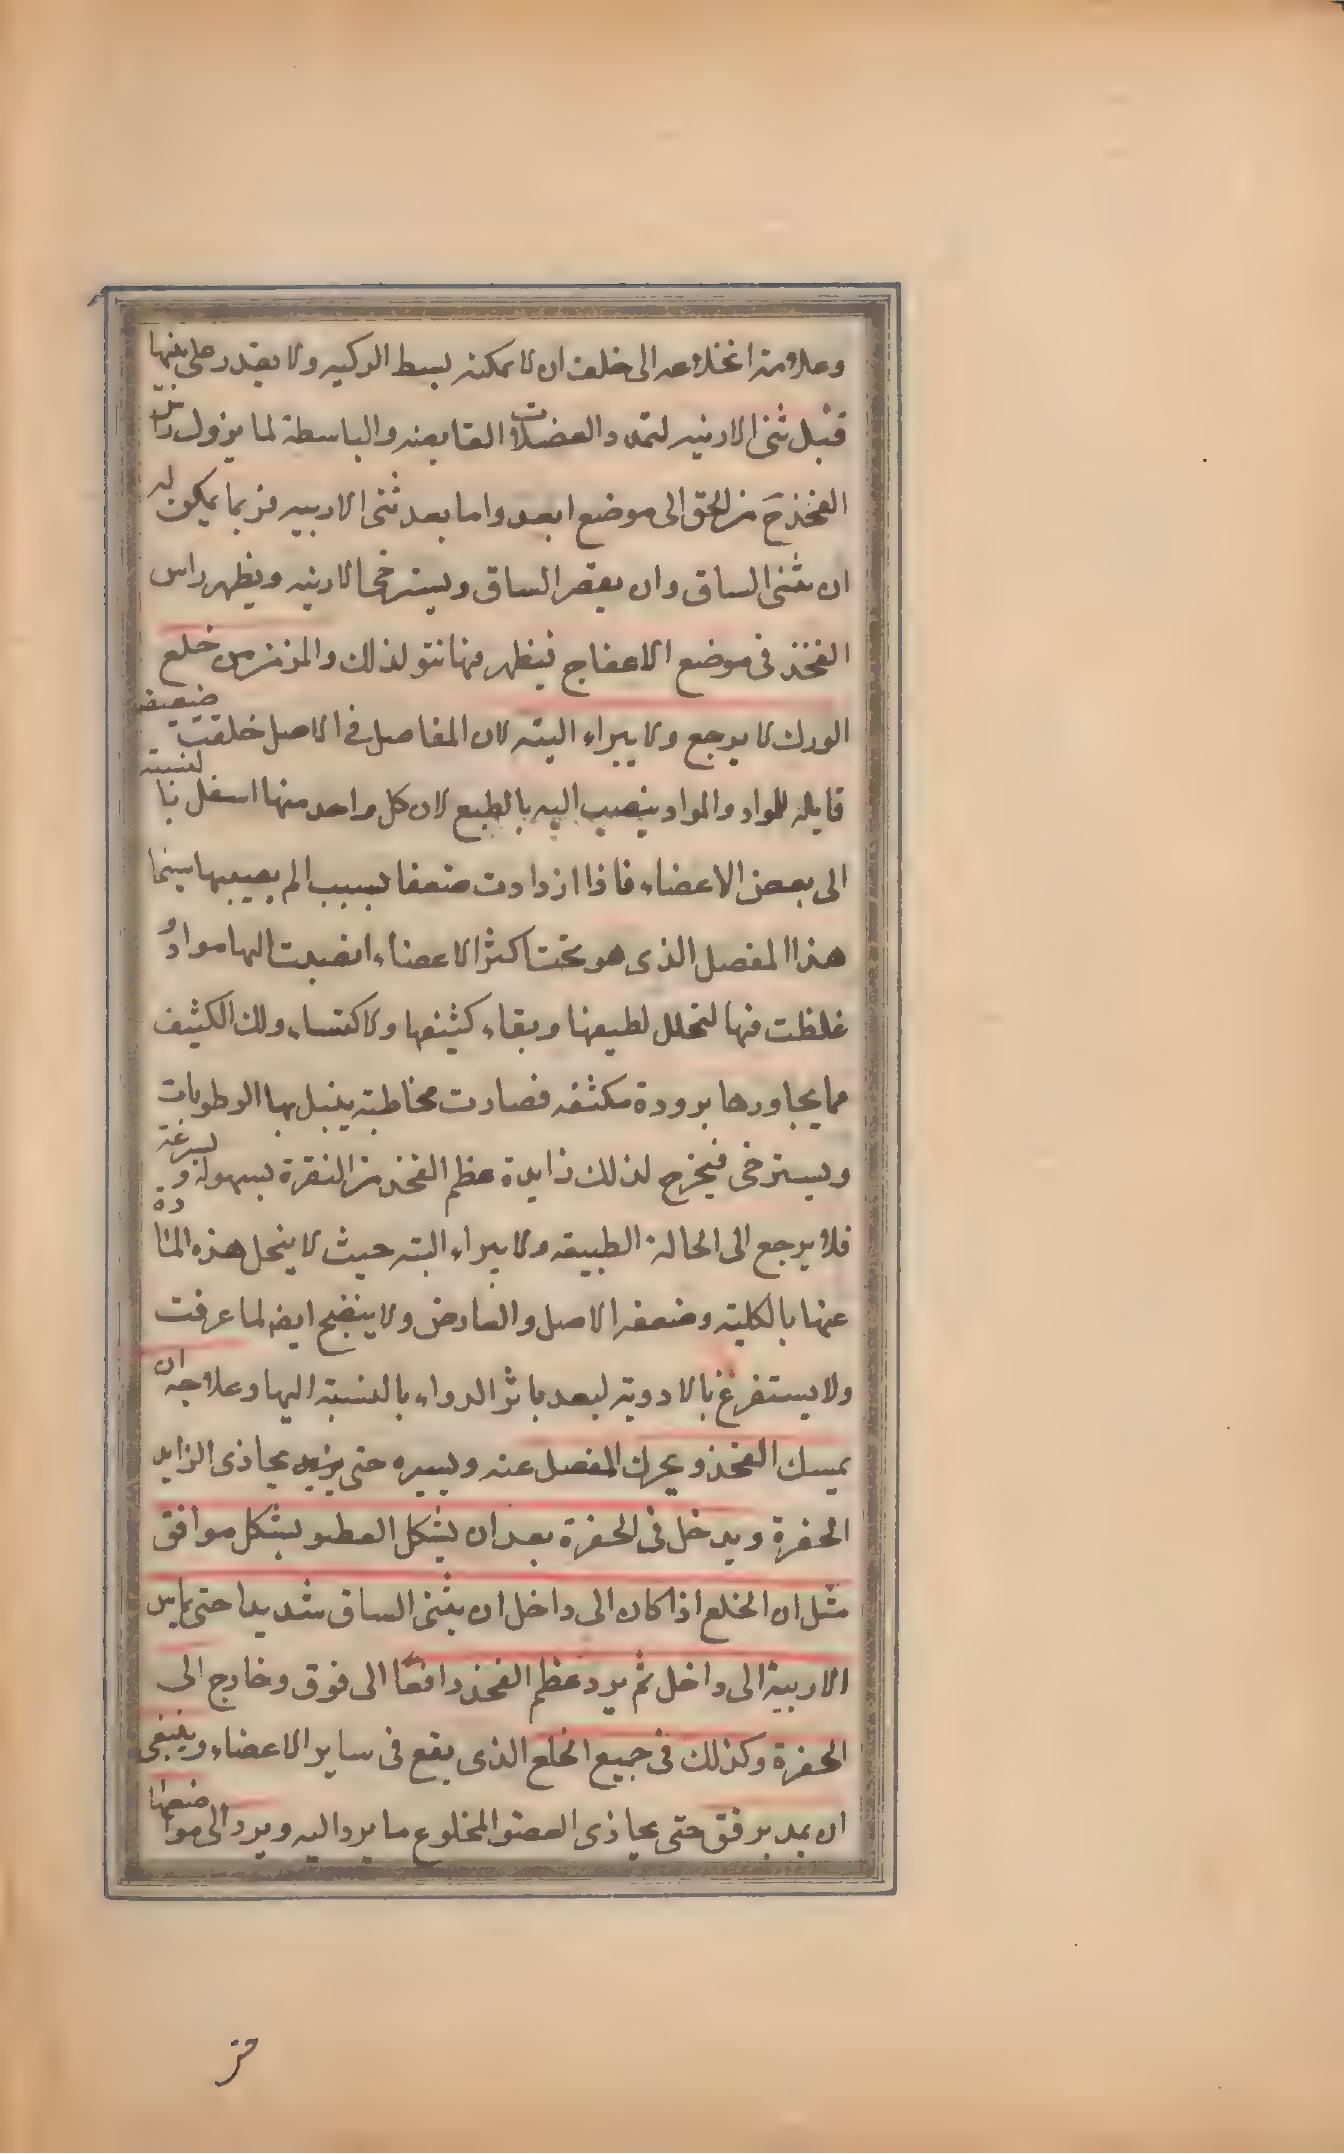 وعلامة انخلاعه الى خلف ان لا يمكنه بسط الركبه ولا يقدر على ثنيها
قبل ثنى الاربيه لتمدد العضلات القابضه والباسطة لما يزول راس
الفخذ ح من الحق الى موضع ابعد واما بعد ثنى الاربيه فربما يمكن له
ان يثنى الساق وان يقصر الساق ويسترخى الاربيه ويظهر راس
الفخذ فى موضع الاعفاج فيظهر فيها نتو لذلك والمزمن من خلع
الورك لا يرجع ولا يبراء البته لان المفاصل فى الاصل خلقت ضعيفه
قابله للمواد والمواد ينصب اليه بالطبع لان كل واحد منها اسفل بالنسبة
الى بعض الاعضاء فاذا ازدادت ضعفا بسبب الم يصيبها سيما
هذا المفصل الذى هو تحت اكثر الاعضاء انصبت اليها مواد و
غلظت فيها لتحلل لطيفها وبقاء كثيفها ولاكتساء ذلك الكثيف
مما يجاورها برودة مكثفه فصارت مخاطية يبتل بها الرطوبات
ويسترخى فيخرج لذلك زايدة عظم الفخذ من النقرة بسهولة و بسرعة
فلا يرجع الى الحالة الطبيعه ولا يبراء البته حيث لا ينحل هذه المادة
عنها بالكلية وضعفه الاصل والعارض ولا ينضج ايضا لما عرفت
ولا يستفرغ بالادوية لبعد تاثر الدواء بالنسبة اليها وعلاجه ان
يمسك الفخذ ويحرك المفصل عنه ويسيره حتى يحاذى الزايد
الحفرة ويدخل فى الحفرة بعد ان يشكل العضو بشكل موافق
مثل ان الخلع اذا كان الى داخل ان يثنى الساق شديدا حتى يماس
الاربية الى داخل ثم يرد عظم الفخذ دافعا الى فوق وخارج الى
الحفرة وكذلك فى جميع الخلع الذى يقع فى ساير الاعضاء وينبغى
ان يمد برفق حتى يحاذى العضو المخلوع ما يرد اليه ويرد الى موضعها